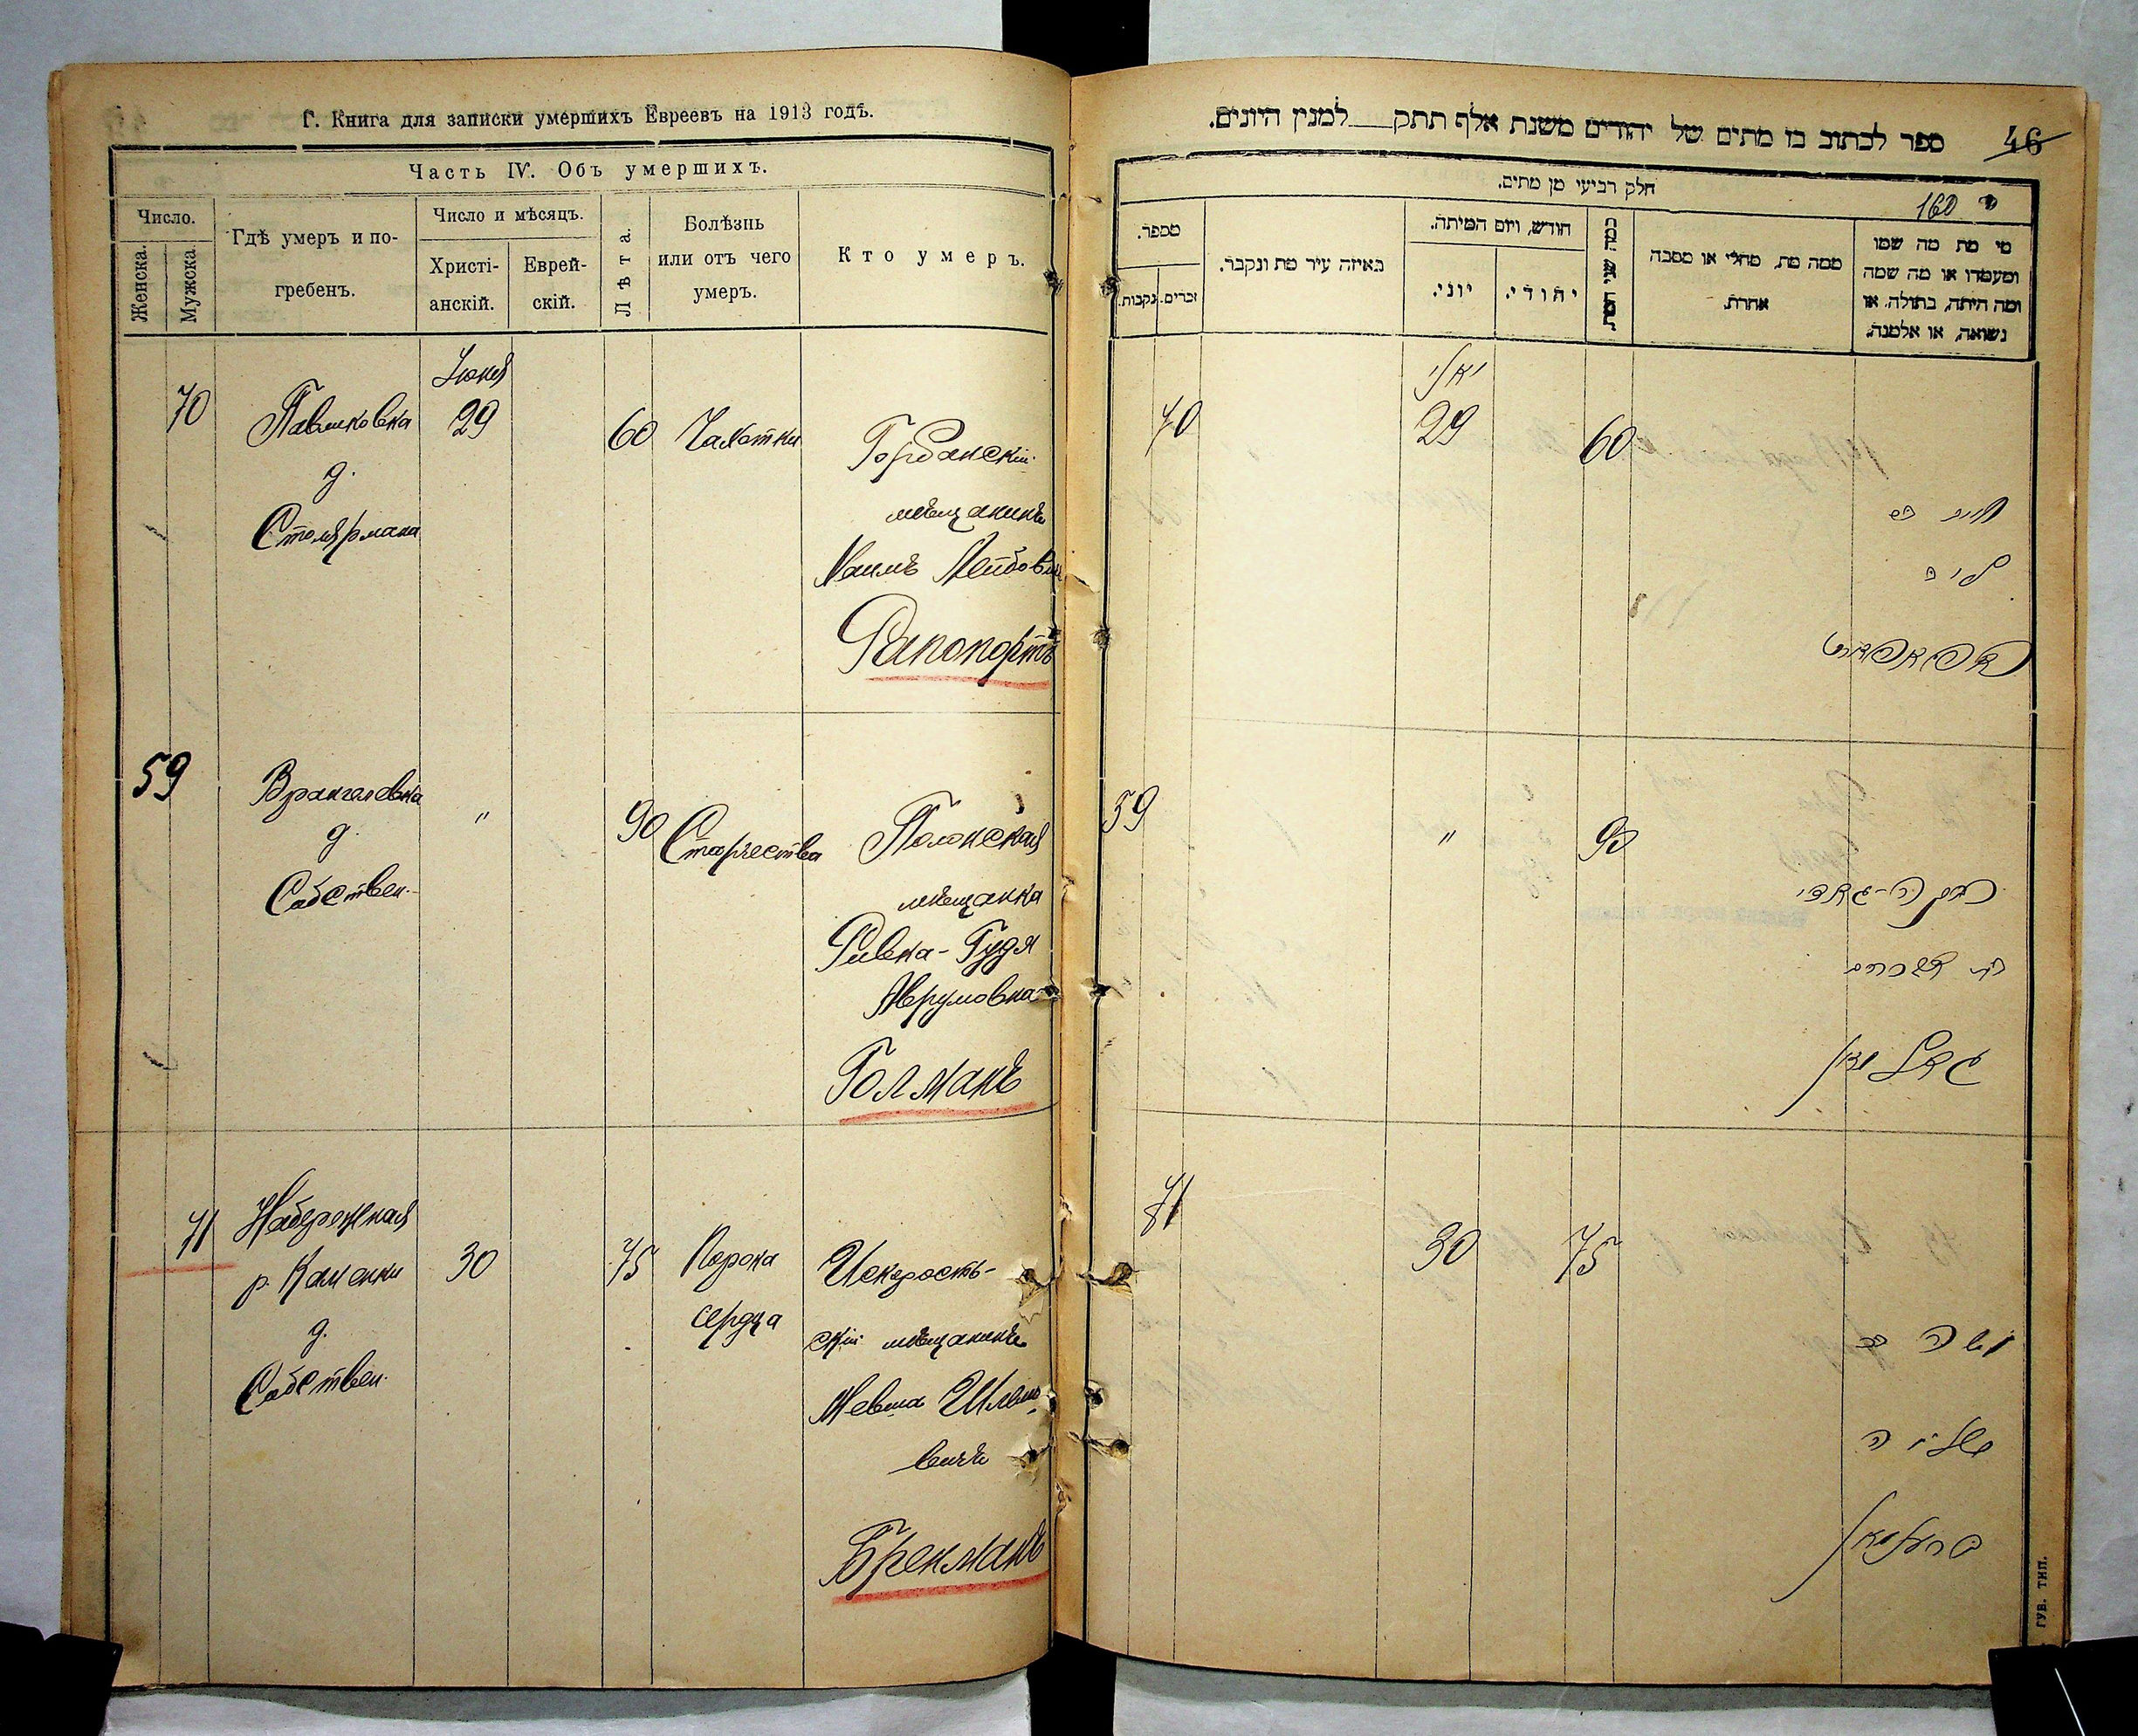 Г. Книга для записки умершихъ Евреевъ на 1913 годъ.
Часть IV. Объ умершихъ.
Число.
Женска.
Мужска
Гдѣ умеръ и по-
гребенъ.
Число и мѣсяцъ.
Христі-
анскій.
Еврей-
скій.
Лѣта.
Болѣзнь
или отъ чего
умеръ.
Кто умеръ.
70
Павликовка
д.
Столярмана
Іюня
29
60
Чахотки
мѣщанинъ
Хаимъ Лейбов
Рапопортъ
59
Врангелевка
д.
Собствен.
"
90
Старчества
Полонская
мѣщанка
Ривка-Гудя
Аврумовна
Голманъ
71
Набережная
р. Каменки
д.
Собствен.
30
75
Порока
сердца
Искорость-
скій мѣщанинъ
Мевша
вичъ
Бренманъ
ספר לכתוב בו מתים של יהודים משנת אלף תתק למנין היונים.
46
חלק רביעי מן מתים.
160
מספר.
נקבות.
זכרים.
באיזה עיר מת ונקבר.
חודש, ויום המיתה.
יוני.
יהודי.
כמה שני המת.
ממה מת, מחלי או מסבה
אחרת.
מי מת מה שמו
ומעמדו או מה שמה
ומה היתה, בתולה, או
נשואה, או אלמנה.
70
יאני
29
60
חיים בן
ליב
ראפאפארט
59
"
90
בת אברהם
גאלמאן
71
30
75
משה בן
ברענמאן
ГУВ. ТИП.